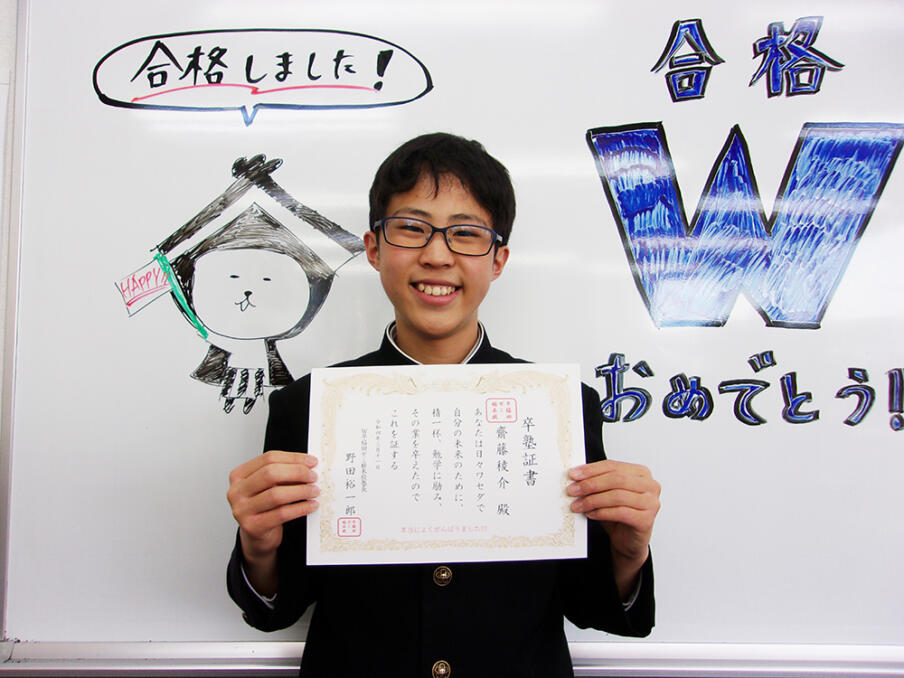 合格しました!
HAPPY
合格
W
おめでとう!
卒塾証書
齋藤稜介 殿
あなたは日々ワセダで
自分の未来のために、
精一杯、勉学に励み、
その業を卒えたので
これを証する
令和四年三月十一日
野田裕一郎
本当によくがんばりました!!!